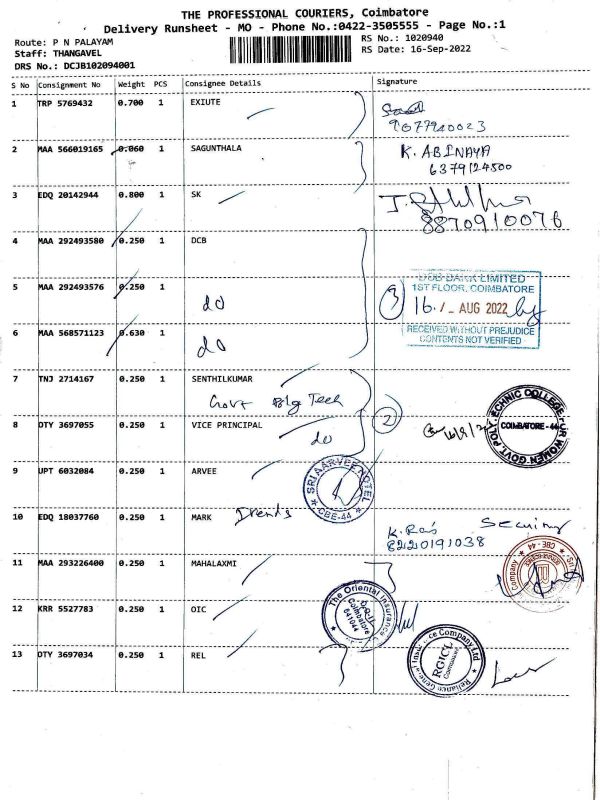 THE PROFESSIONAL COURIERS, Coimbatore
Delivery Runsheet - MO - Phone No.:0422-3505555 - Page No.:1
Route: P N PALAYAM
RS No.: 1020940
Staff: THANGAVEL
RS Date: 16-Sep-2022
DRS No.: DCJB102094001
S No Consignment No Weight PCS Consignee Details Signature
1 TRP 5769432 0.700 1 EXIUTE
9077940023
2 MAA 566019165 0.060 1 SAGUNTHALA K. ABINAYA
6379124500
3 EDQ 20142944 0.800 1 SK
8870910076
4 MAA 292493580 0.250 1 DCB
DCB BANK LIMITED
1ST FLOOR, COIMBATORE
5 MAA 292493576 0.250 1
do 3 16 / AUG 2022
6 MAA 568571123 0.630 1
do
RECEIVED WITHOUT PREJUDICE
CONTENTS NOT VERIFIED
7 TNJ 2714167 0.250 1 SENTHILKUMAR
Govt Blg Tech
8 DTY 3697055 0.250 1 VICE PRINCIPAL
do 2
COIMBATORE - 44
9 UPT 6032084 0.250 1 ARVEE
SRI AARVEE HOTEL
CBE-44
10 EDQ 18037760 0.250 1 MARK Trends
K. Ras Security
8220191038
11 MAA 293226400 0.250 1 MAHALAXMI
CBE - 44
12 KRR 5527783 0.250 1 OIC
The Oriental Insurance
Coimbatore
641044
13 DTY 3697034 0.250 1 REL
Reliance General Insurance Company Ltd
RGICL
Coimbatore